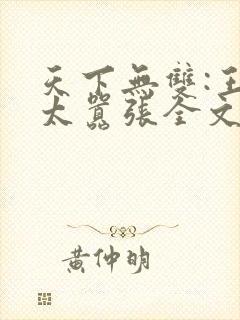 天下無雙:王
太囂張全文
黃仲明